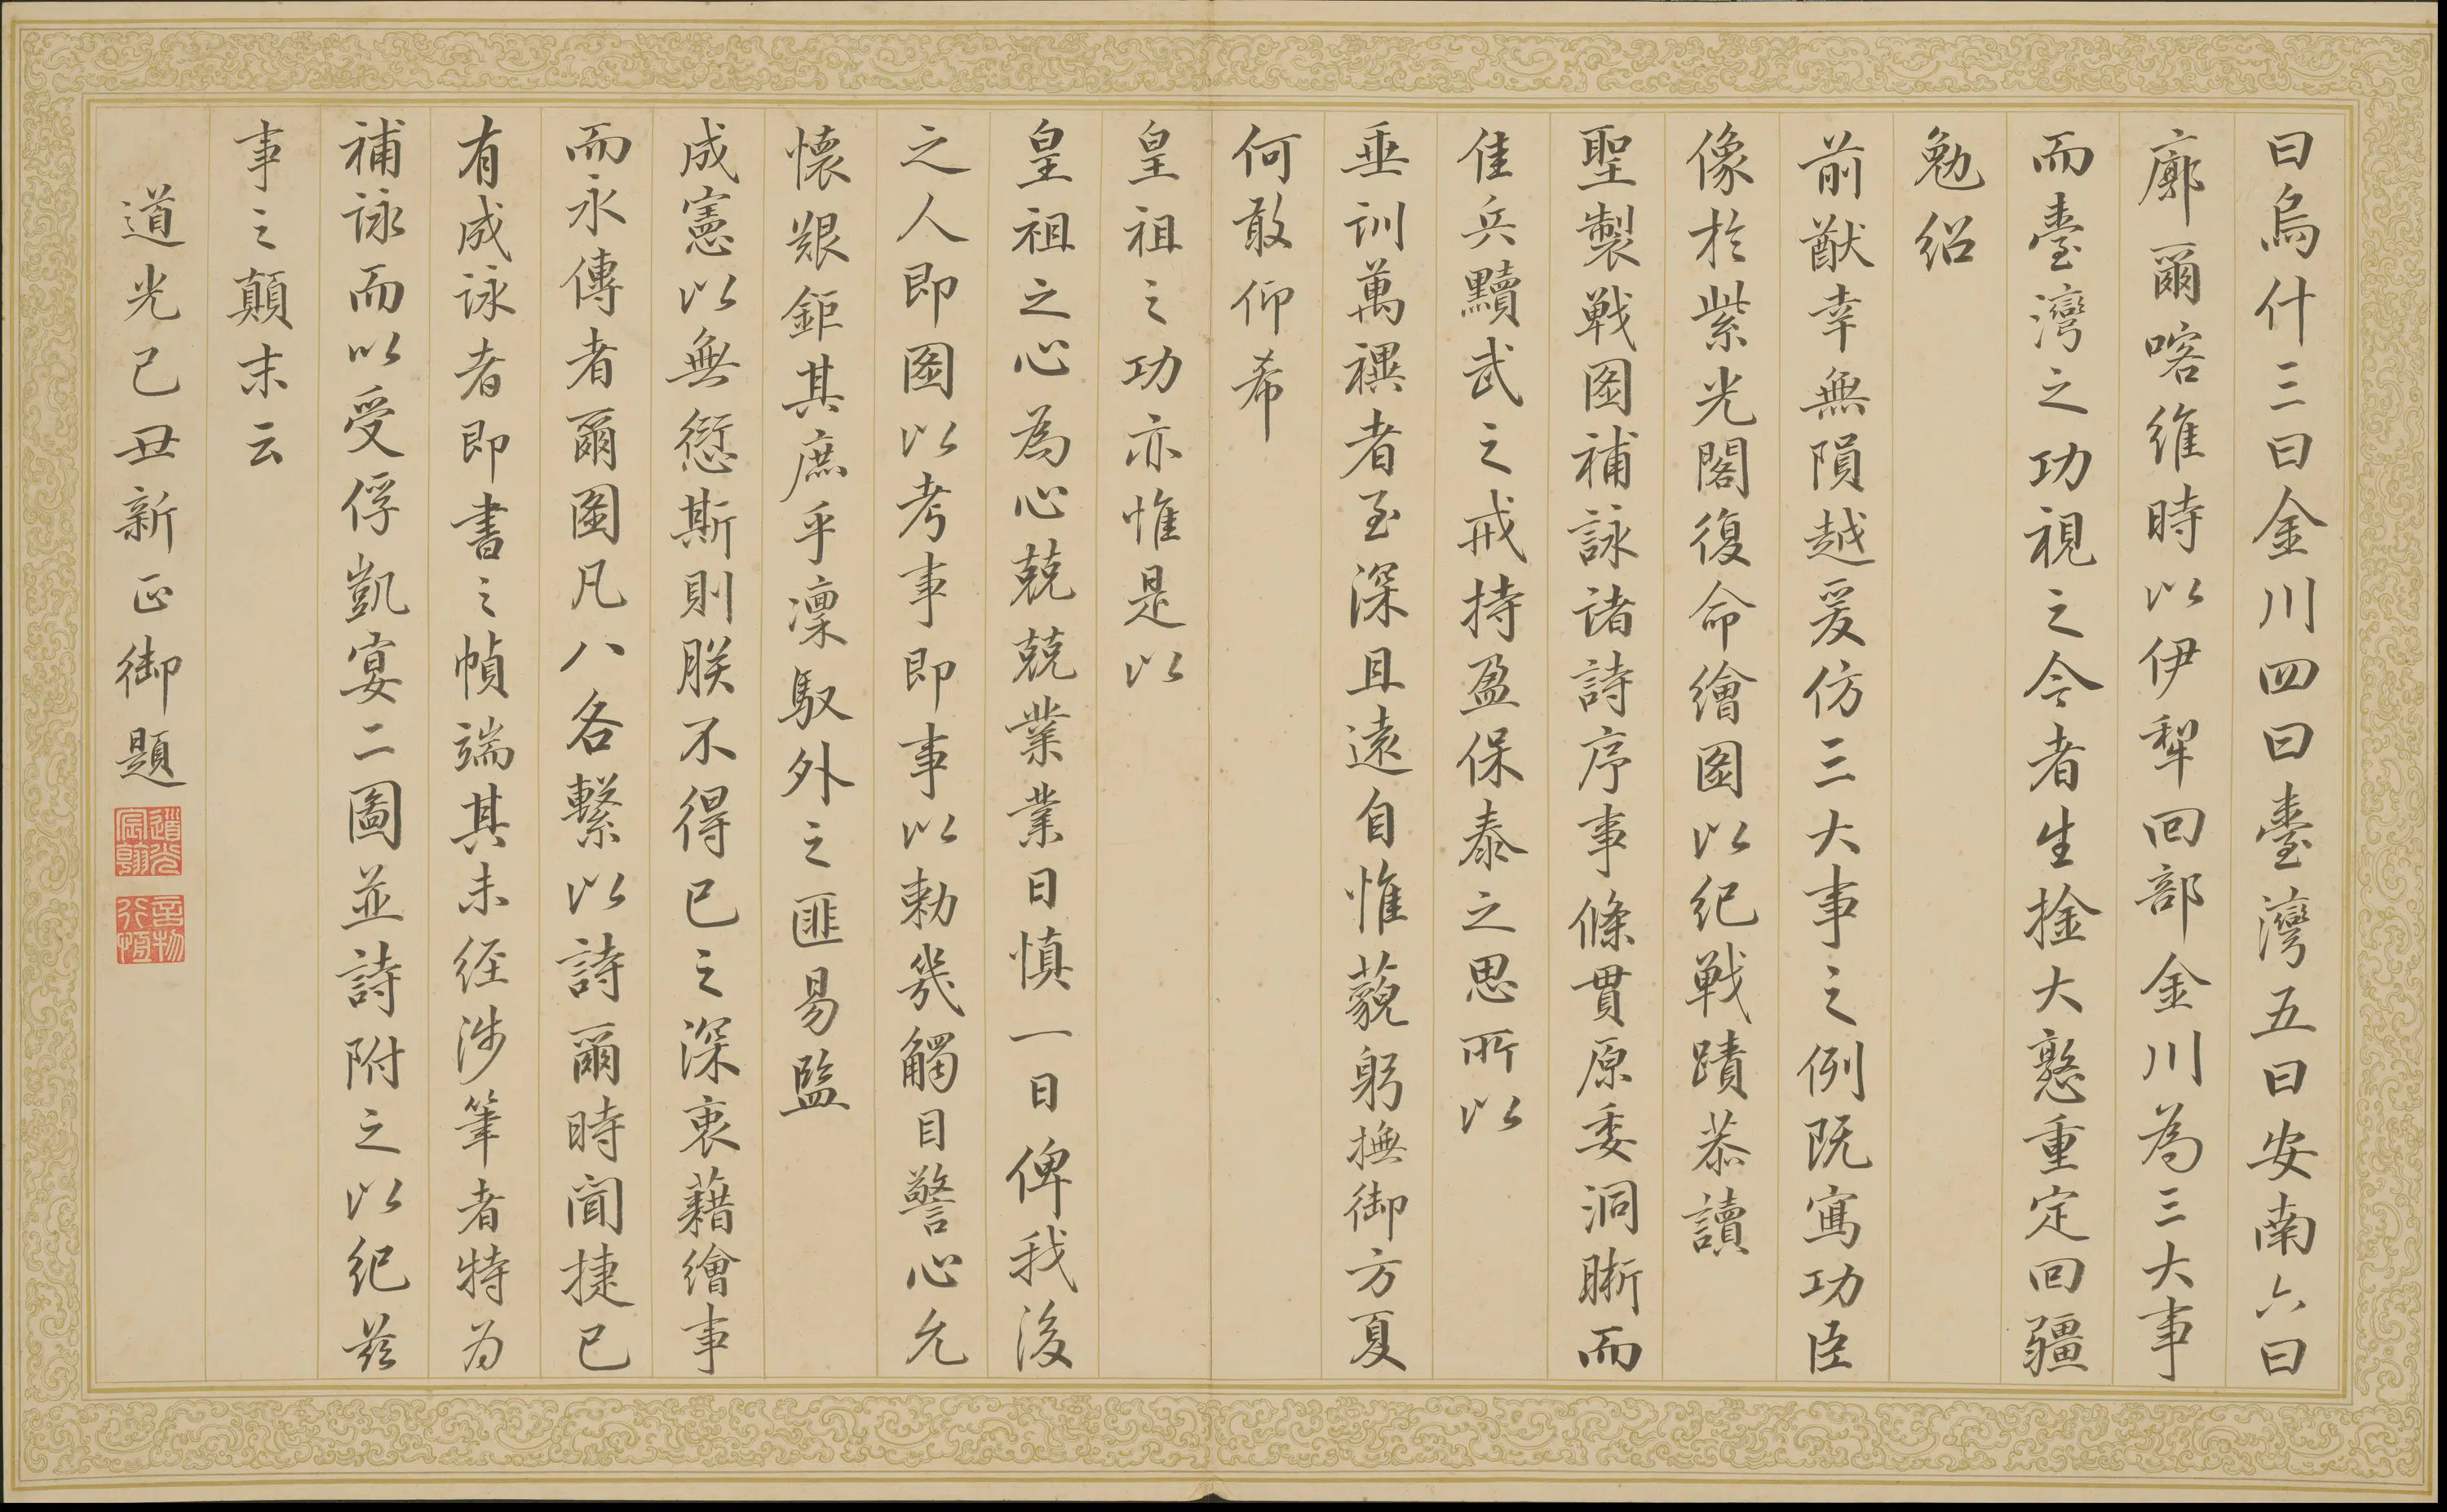 曰烏什三曰金川四曰臺灣五曰安南六曰
廓爾喀維時以伊犁回部金川為三大事
而臺灣之功視之今者生擒大憝重定回疆
勉紹
前猷幸無隕越爰仿三大事之例既寫功臣
像於紫光閣復命繪圖以紀戰蹟恭讀
聖製戰圖補詠諸詩序事條貫原委洞晰而
佳兵黷武之戒持盈保泰之思所以
垂訓萬禩者至深且遠自惟藐躬撫御方夏
何敢仰希
皇祖之功亦惟是以
皇祖之心為心兢兢業業日慎一日俾我後
之人即圖以考事即事以勅幾觸目警心允
懷艱鉅其庶乎凜馭外之匪易監
成憲以無愆斯則朕不得已之深衷藉繪事
而永傳者爾圖凡八各繫以詩爾時聞捷已
有成詠者即書之幀端其未經涉筆者特为
補詠而以受俘凱宴二圖並詩附之以紀茲
事之顛末云
道光己丑新正御題
道光宸翰
言物行恆